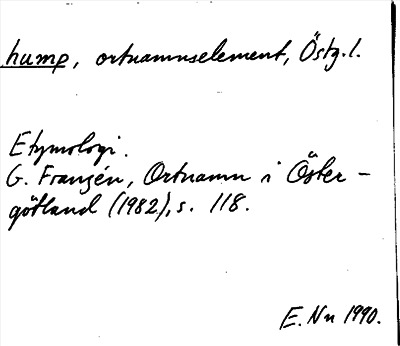 hump, ortnamnselement, Östg.l.
Etymologi.
G. Franzén, Ortnamn i Öster-
götland (1982), s. 118.
E. Nn 1990.